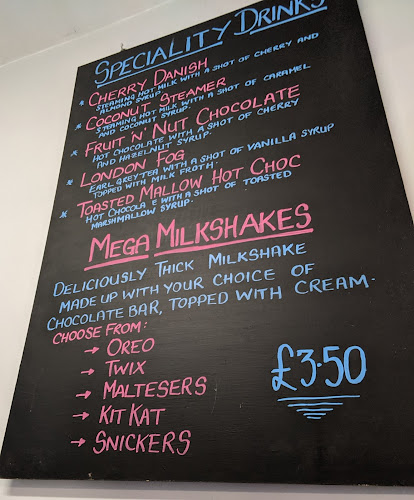 SPECIALITY DRINKS
* CHERRY DANISH
STEAMING HOT MILK WITH A SHOT OF CHERRY AND
ALMOND SYRUP.
* COCONUT STEAMER
STEAMING HOT MILK WITH A SHOT OF CARAMEL
AND COCONUT SYRUP.
* FRUIT N' NUT CHOCOLATE
HOT CHOCOLATE WITH A SHOT OF CHERRY
AND HAZELNUT SYRUP.
* LONDON FOG
EARL GREY TEA WITH A SHOT OF VANILLA SYRUP
TOPPED WITH MILK FROTH.
* TOASTED MALLOW HOT CHOC
HOT CHOCOLA E WITH A SHOT OF TOASTED
MARSHMALLOW SYRUP.
MEGA MILKSHAKES
DELICIOUSLY THICK MILKSHAKE
MADE UP WITH YOUR CHOICE OF
CHOCOLATE BAR, TOPPED WITH CREAM.
CHOOSE FROM:
→ OREO
→ TWIX
→ MALTESERS
→ KIT KAT
→ SNICKERS
£3.50